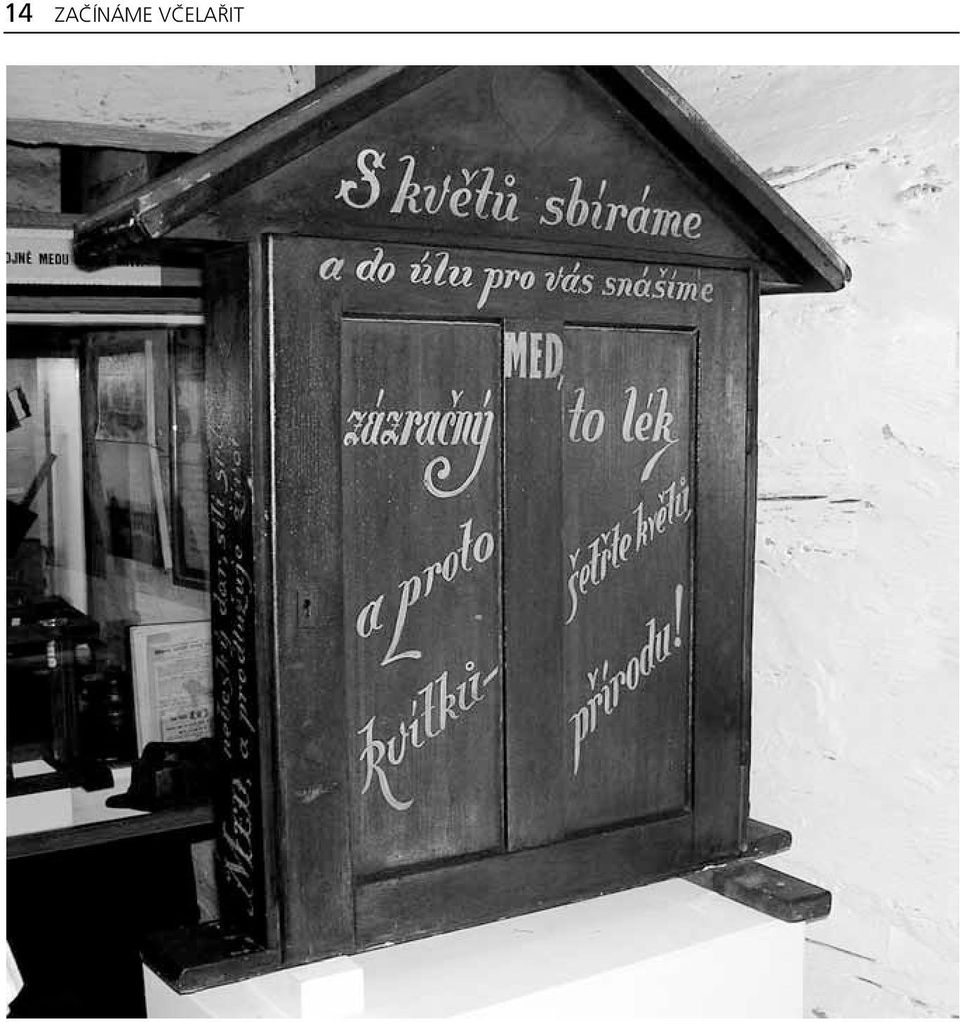 14 ZAČÍNÁME VČELAŘIT
S květů sbíráme
a do úlu pro vás snášíme
MED,
zázračný to lék
a proto šetřte květů,
kvítků- přírodu!
MEDU
Med, nebeský dar, sílí
a prodlužuje